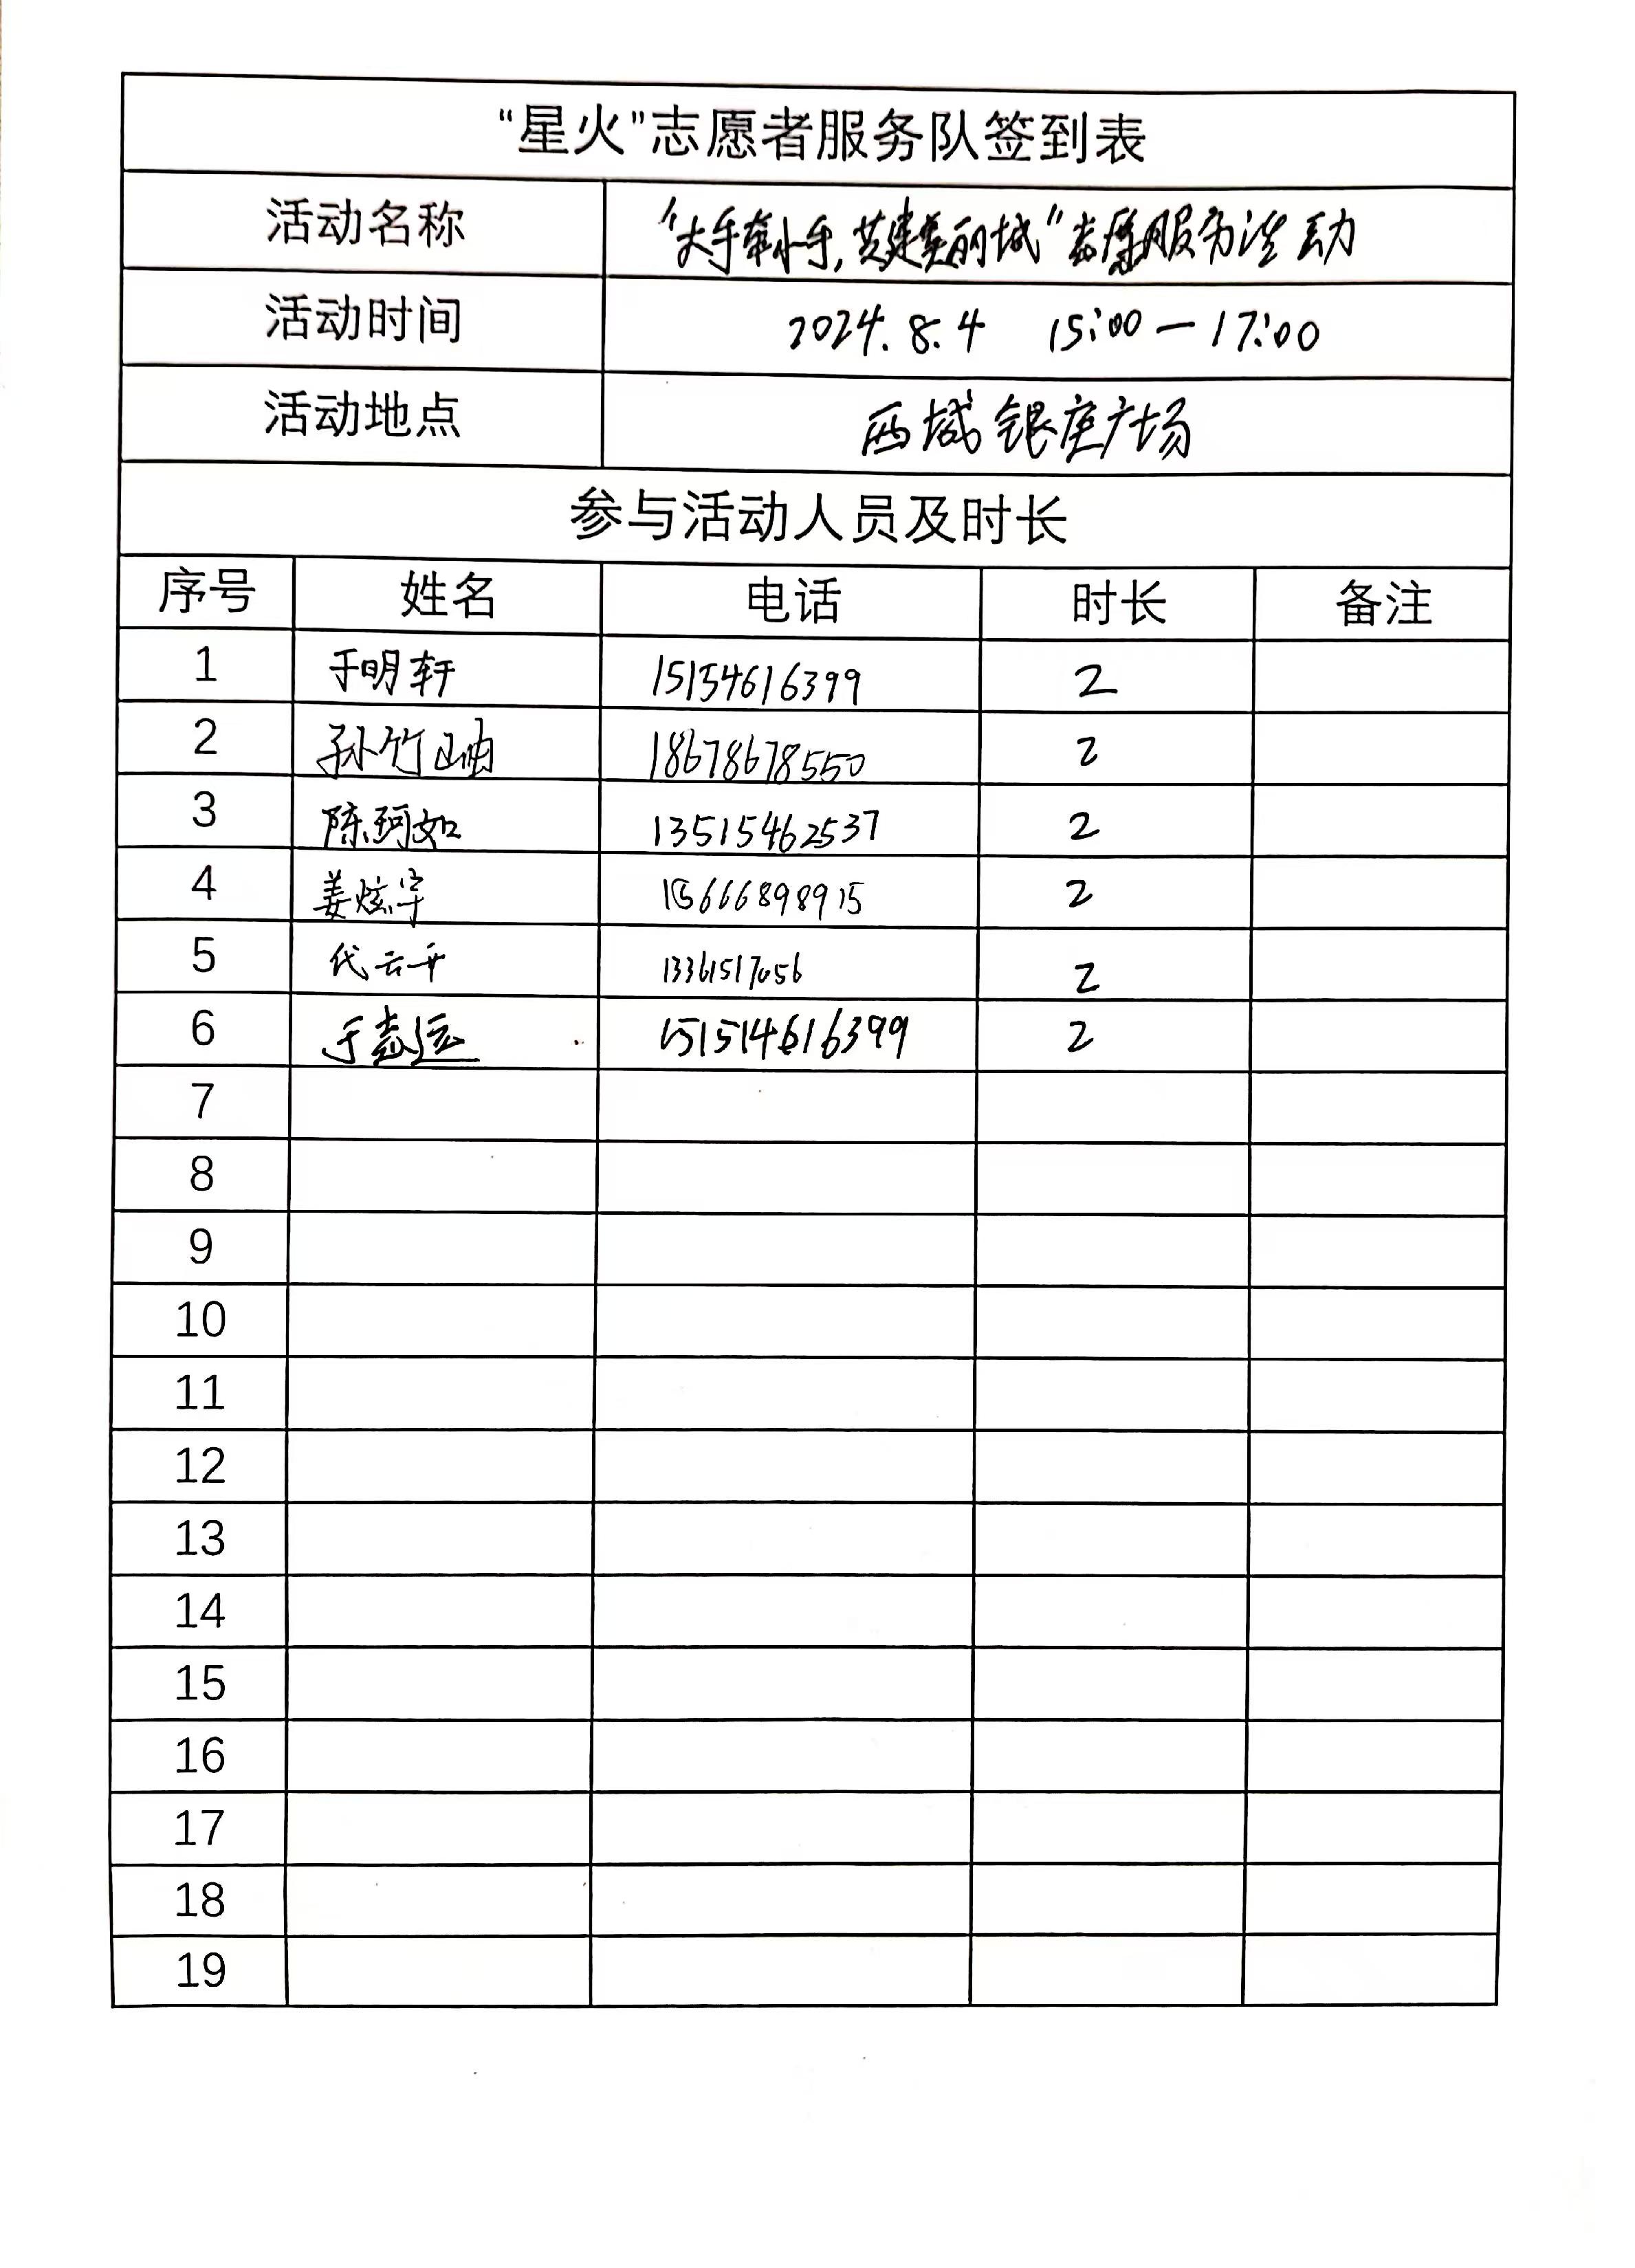 “星火”志愿者服务队签到表
活动名称 “大手牵小手,共建美丽城”志愿服务活动
活动时间 2024.8.4 15:00—17:00
活动地点 西城银座广场
参与活动人员及时长
序号 姓名 电话 时长 备注
1 于明轩 15154616399 2
2 孙竹岫 18678678550 2
3 陈珂如 13515462537 2
4 姜炫宇 15666898915 2
5 代云开 13361517056 2
6 于志运 151514616399 2
7
8
9
10
11
12
13
14
15
16
17
18
19